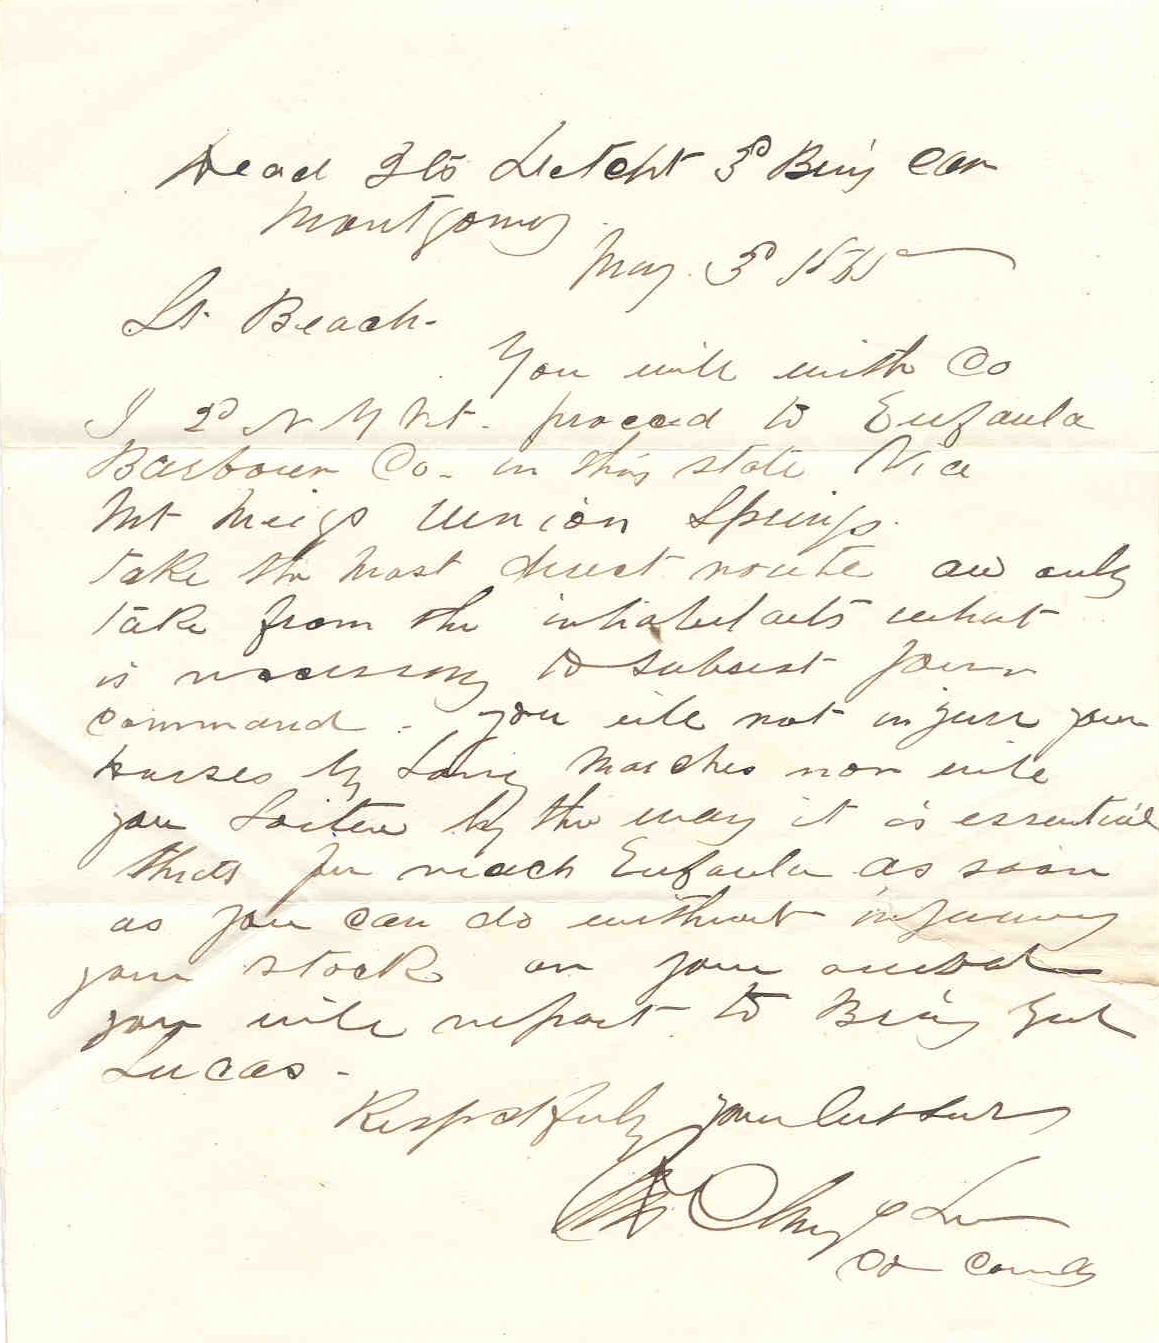 Head Qts Detcht 3d Brig Cav
Montgomery
May 3d 1865
Lt. Beach.
You will with Co
I 2d N Y Vet. proceed to Eufaula
Barbour Co. in this state Vice
Mt Meigs Union Springs.
take the most direct route and only
take from the inhabitants what
is necessary to subsist your
command. you will not injure your
horses by Long marches nor will
you Loiter by the way it is essential
that you reach Eufaula as soon
as you can do without injuring
your stock on your arrival
you will report to Brig Genl
Lucas.
Respectfully your Obt Servt
Co Comdg